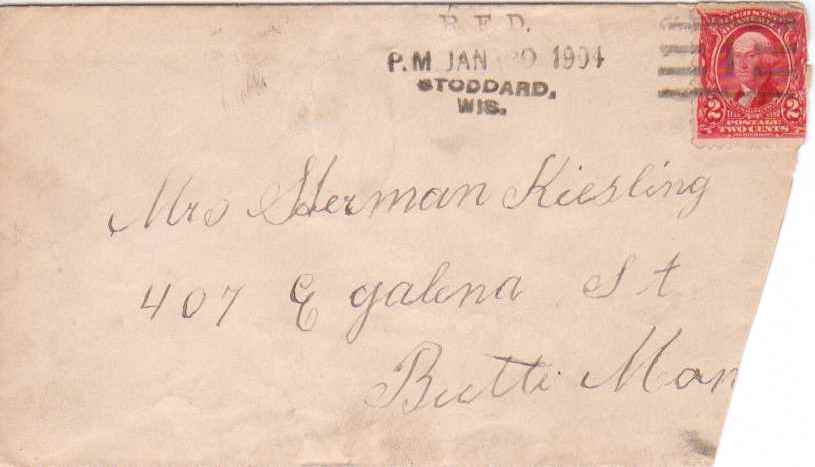 R.F.D.
P.M JAN 1904
STODDARD,
WIS.
2 2
POSTAGE
TWO CENTS
Mrs Herman Kiesling
407 E galena St
Butte Mon